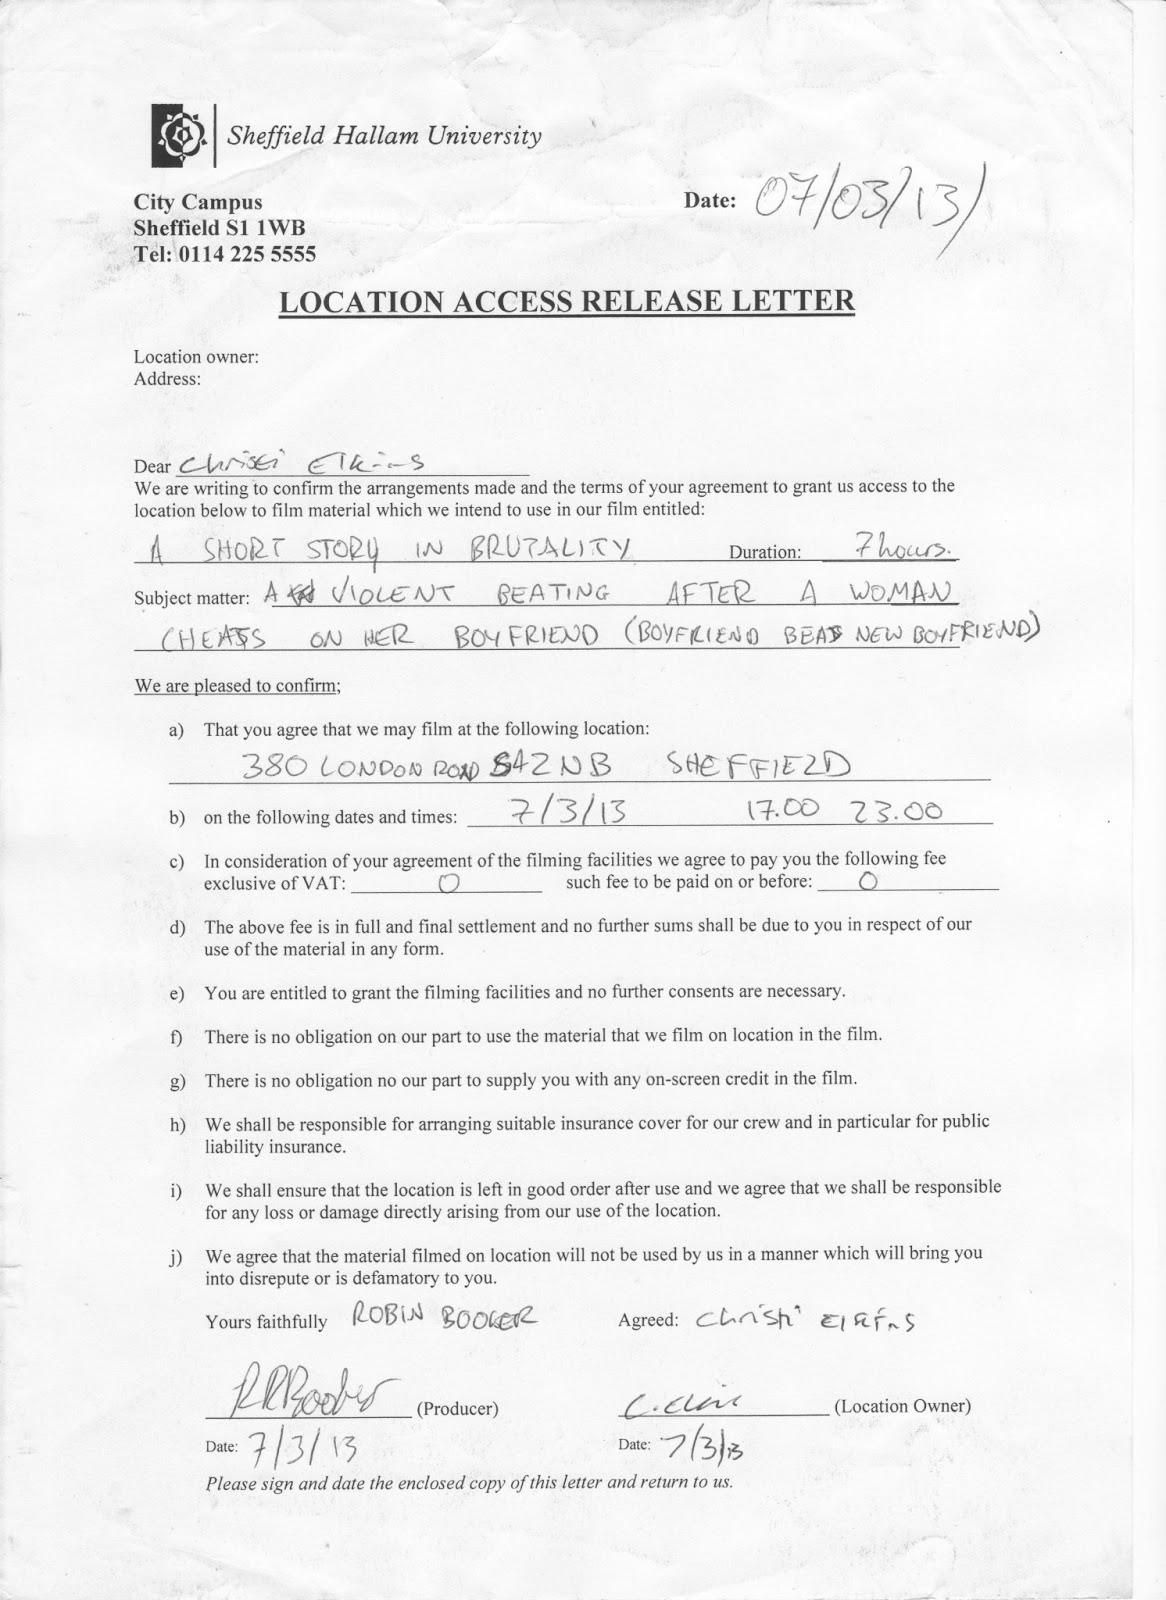 Sheffield Hallam University
City Campus
Sheffield S1 1WB
Tel: 0114 225 5555
Date: 07/03/13
LOCATION ACCESS RELEASE LETTER
Location owner:
Address:
Dear Christi Elkins
We are writing to confirm the arrangements made and the terms of your agreement to grant us access to the
location below to film material which we intend to use in our film entitled:
A SHORT STORY IN BRUTALITY Duration: 7 hours.
Subject matter: A VIOLENT BEATING AFTER A WOMAN
CHEATS ON HER BOYFRIEND (BOYFRIEND BEATS NEW BOYFRIEND)
We are pleased to confirm;
a) That you agree that we may film at the following location:
380 LONDON ROAD S42NB SHEFFIELD
b) on the following dates and times: 7/3/13 17.00 23.00
c) In consideration of your agreement of the filming facilities we agree to pay you the following fee
exclusive of VAT: 0 such fee to be paid on or before: 0
d) The above fee is in full and final settlement and no further sums shall be due to you in respect of our
use of the material in any form.
e) You are entitled to grant the filming facilities and no further consents are necessary.
f) There is no obligation on our part to use the material that we film on location in the film.
g) There is no obligation no our part to supply you with any on-screen credit in the film.
h) We shall be responsible for arranging suitable insurance cover for our crew and in particular for public
liability insurance.
i) We shall ensure that the location is left in good order after use and we agree that we shall be responsible
for any loss or damage directly arising from our use of the location.
j) We agree that the material filmed on location will not be used by us in a manner which will bring you
into disrepute or is defamatory to you.
Yours faithfully ROBIN BOOKER Agreed: Christi Elkins
(Producer) (Location Owner)
Date: 7/3/13 Date: 7/3/13
Please sign and date the enclosed copy of this letter and return to us.